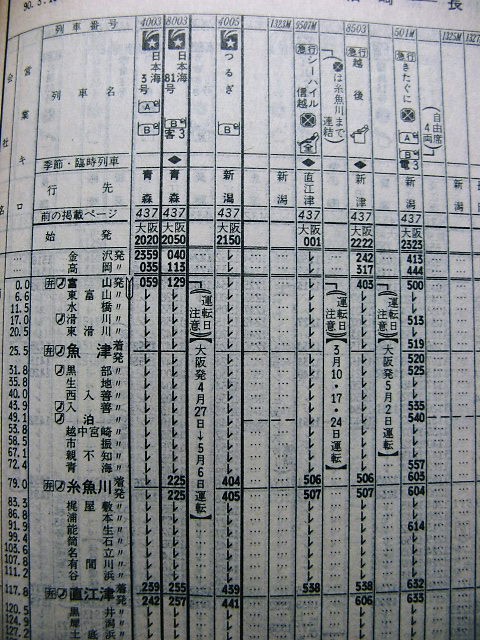 列車番号 4003 8003 4005 1323M 9507M 8503 501M 1325M
列車名
日本海3号
日本海81号
つるぎ
急行 シーハイル信越
は糸魚川まで連結
急行 越後
急行 きたぐに
自由席4両
季節・臨時列車 ◆ ◆ ◆ ◆
行先 青森 青森 新潟 新潟 直江津 新津 新潟
前の掲載ページ 437 437 437 437 437 437
始発 大阪 大阪 大阪 大阪 大阪 大阪
2020 2050 2150 001 2222 2323
金沢発 2359 040 242 413
高岡〃 035 113 317 444
0.0 富山〃 059 129 403 500
6.6 東富山〃
11.5 水橋〃
17.0 滑川〃 513
20.5 東滑川〃
25.5 魚津着 519
発 520
31.8 黒部〃 525
35.8 生地〃
40.0 西入善〃
43.9 入善〃 535
49.1 泊〃 540
53.8 越中宮崎〃
58.5 市振〃
67.1 親不知〃
72.4 青海〃 557
79.0 糸魚川着 225 404 506 506 603
発 225 405 507 507 604
83.3 梶屋敷〃
86.8 浦本〃
91.9 能生〃 614
99.4 筒石〃
103.6 名立〃
107.8 有間川〃
111.2 谷浜〃
117.8 直江津着 239 255 439 538 538 632
発 242 257 441 606 633
120.5 黒井〃
124.9 犀潟〃
127.2 土底浜〃
運転日注意
大阪発4月27日→5月6日運転
運転日注意
3月10・17・24日運転
運転日注意
大阪発5月2日運転